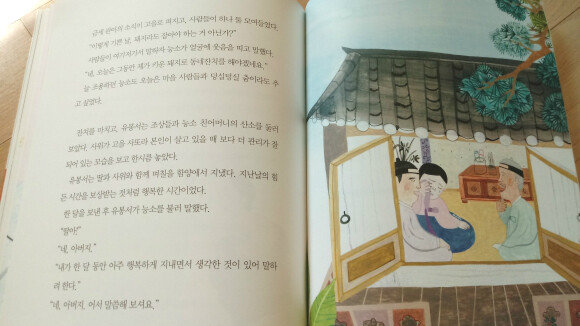 금세 권아의 소식이 고을로 퍼지고, 사람들이 하나 둘 모여들었다.
"이렇게 기쁜 날, 돼지라도 잡아야 하는 거 아닌가?"
사람들이 여기저기서 말하자 능소가 얼굴에 웃음을 띠고 말했다.
"네, 오늘은 그동안 제가 키운 돼지로 동네잔치를 해야겠네요."
늘 조용하던 능소도 오늘은 마을 사람들과 덩실덩실 춤이라도 추
고 싶었다.
잔치를 마치고, 유봉서는 조상들과 능소 친어머니의 산소를 둘러
보았다. 사위가 고을 사또라 본인이 살고 있을 때 보다 더 관리가 잘
되어 있는 모습을 보고 한시름 놓았다.
유봉서는 딸과 사위와 함께 며칠을 함양에서 지냈다. 지난날의 힘
든 시간을 보상받는 것처럼 행복한 시간이었다.
한 달을 보낸 후 유봉서가 능소를 불러 말했다.
"딸아!"
"네, 아버지."
"내가 한 달 동안 아주 행복하게 지내면서 생각한 것이 있어 말하
려 한다."
"네, 아버지. 어서 말씀해 보셔요."